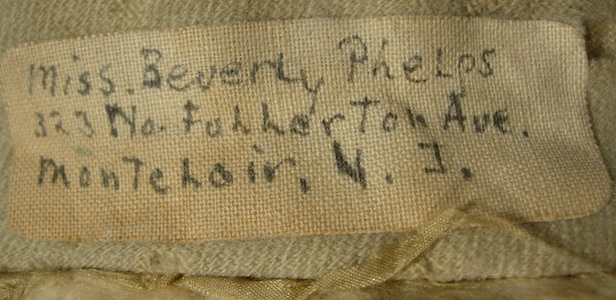 Miss. Beverly Phelps
323 No. Fullerton Ave.
Montclair, N. J.